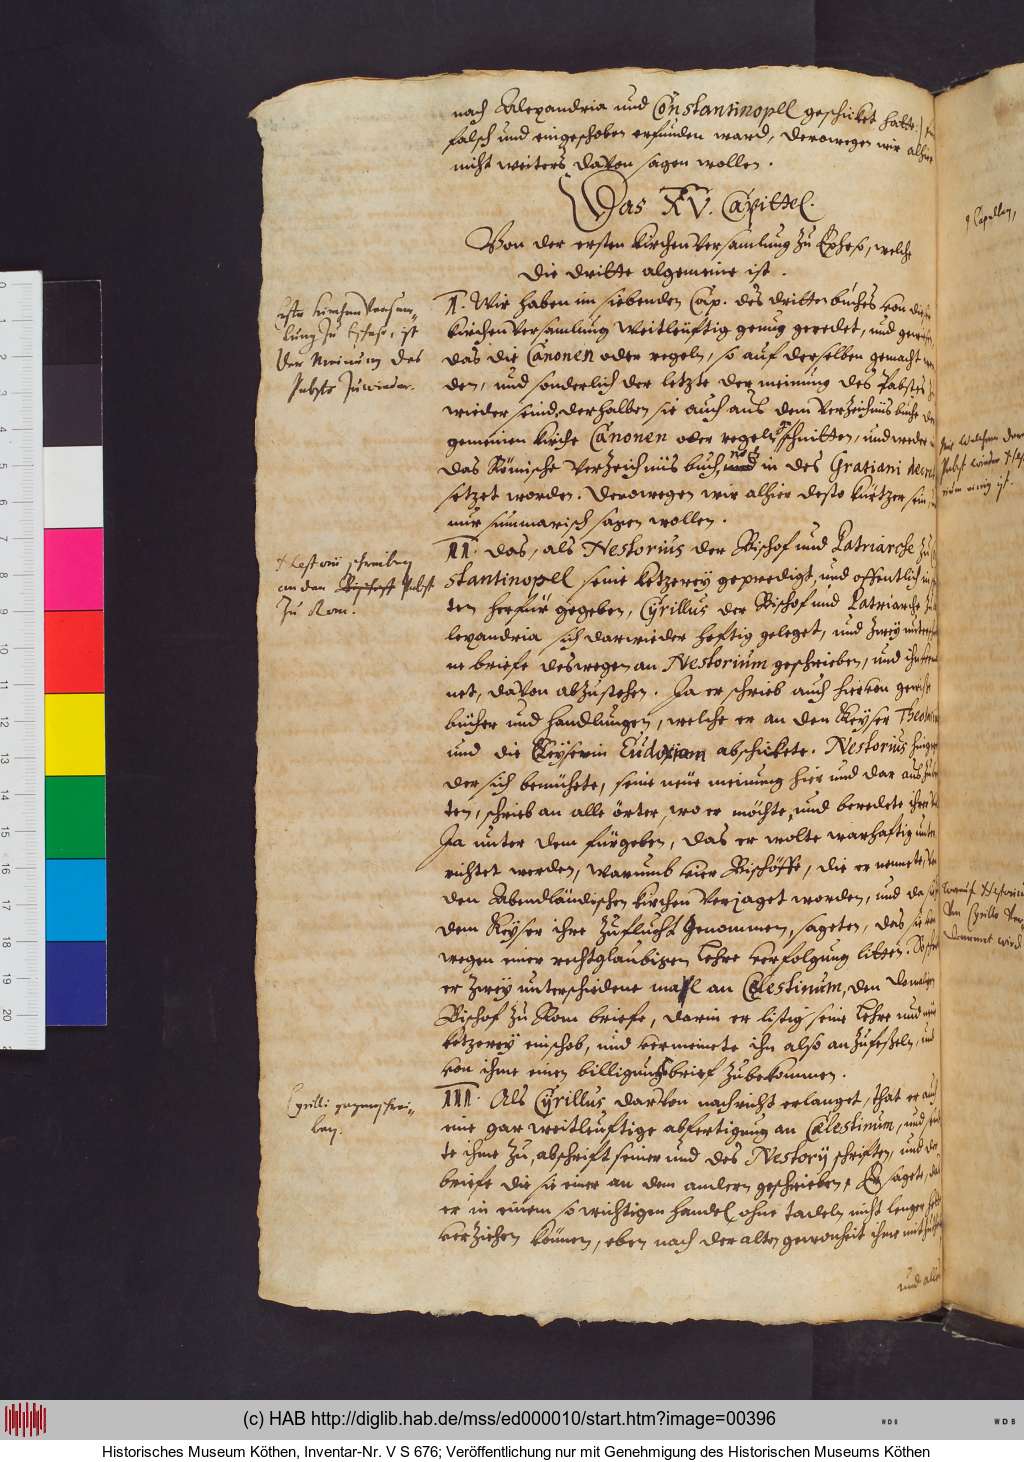 nach Alexandria und Constantinopll geschicket hatte:|
falsch und eingeschoben erfunden ward, derowegen wir alhier
nicht weiters davon sagen wollen.
Das XV. Capittel.
Von der ersten Kirchen Versamlung zu Epheso, welche
die dritte algemeine ist.
erste Kirchen Versam-
lung zu Epheso, ist
der Meinung des
Pabsts zuwieder.
I. Wir haben im siebenden Cap. des dritten buches von dieser
Kirchen Versamlung weitleuftig genug geredet, und gewiesen,
das die Canonen oder regeln, so auf derselben gemacht wor
den, und sonderlich der letzte der meinung des Pabstes zu
wieder seind, derhalben sie auch aus dem Verzeichnüs buche der
gemeinen Kirche Canonen oder regeln geschnitten, und weder in
das Römische Verzeichnüs buch, noch in des Gratiani decret
setzet worden. Derowegen wir alhier desto kürtzer sein,
nur summarisch sagen wollen.
II. Das, als Nestorius der Bischof und Patriarche zu Con
stantinopel seine ketzerey gepredigt, und offentlich in
ten herfür gegeben, Cyrillus der Bischof und Patriarche zu A
lexandria sich darwieder heftig geleget, und zwey unterschiede
ne briefe deswegen an Nestorium geschrieben, und ihn
net, davon abzustehen. Ja er schrieb auch hievon gewisse
bücher und handlungen, welche er an den Keyser Theodosium
und die Keyserin Eudoxiam abschickete. Nestorius hinge
der sich bemühete, seine neüe meinung hier und dar aus zu
ten, schrieb an alle örter, wo er möchte, und beredete
Ja unter dem fürgeben, das er wolte warhaftig unter
richtet werden, warumb vier Bischöffe, die er nennete, von
den Abendländischen Kirchen verjaget worden, und da sie
dem Keyser ihre Zuflucht genommen, sageten, das sie
wegen einer rechtglaubigen Lehre verfolgung litten.
er zwey unterschiedene mahl an Celestinum, den damaligen
Bischof zu Rom briefe, darin er listig seine Lehre und
ketzerey einschob, und vermeinete ihn also anzufeszeln, und
von ihme einen billigungsbrief zubekommen.
schreiben
an den Pabst
zu Rom.
III. Als Cyrillus darvon nachricht erlanget, that er auch
eine gar weitleuftige abfertigung an Cælestinum, und sand
te ihme zu, abschrift seiner und des Nestorÿ schriften, und der
briefe die sie einer an den andern geschrieben. Er sagete, das
er in einem so wichtigen handel ohne tadeln nicht lenger hette
verziehen können, eben nach der alten gewonheit ihme mit
Cyrilli gegenschrei-
ben.
und alle
Capellen,
Pabst wieder
worauf Nestorius
von Cyrillo
wird
(c) HAB http://diglib.hab.de/mss/ed000010/start.htm?image=00396
Historisches Museum Köthen, Inventar-Nr. V S 676; Veröffentlichung nur mit Genehmigung des Historischen Museums Köthen